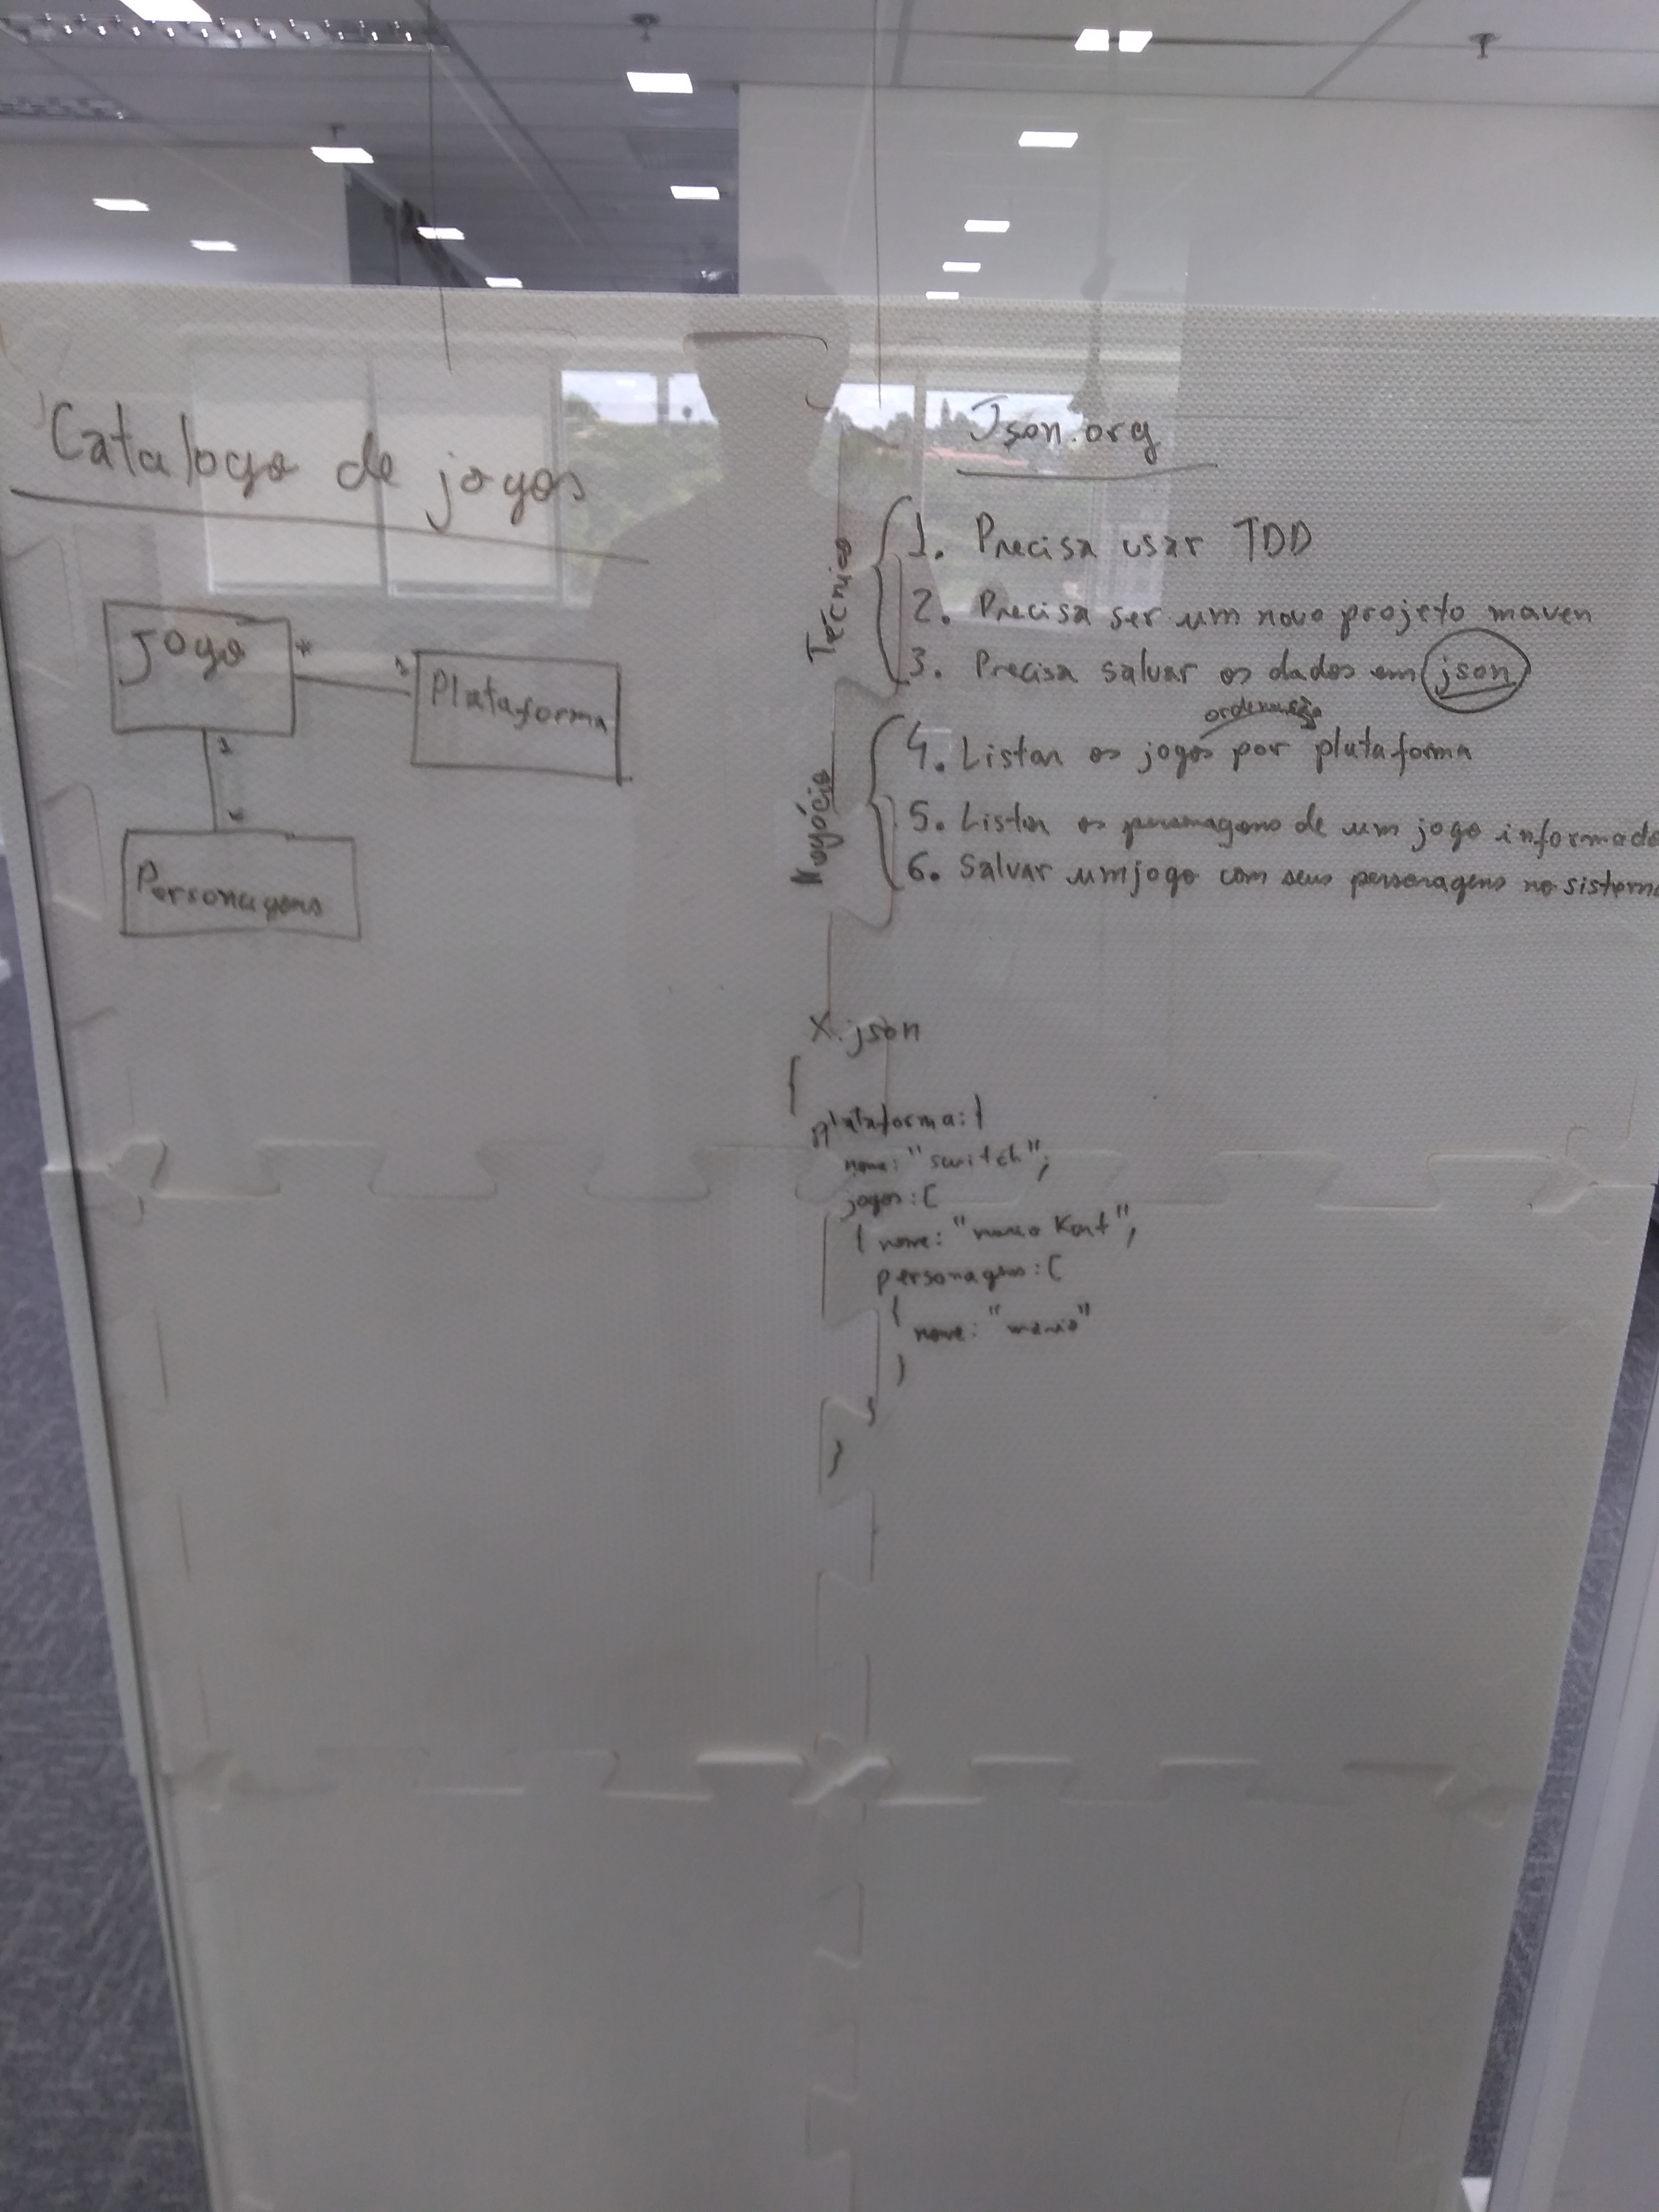 Catalogo de jogos
Jogo
*
1
Plataforma
1
*
Personagens
Json.org
Técnico
1. Precisa usar TDD
2. Precisa ser um novo projeto maven
3. Precisa salvar os dados em json
Negócio
ordenação
4. Listar os jogos por plataforma
5. Listar os personagens de um jogo informado
6. Salvar um jogo com seus personagens no sistema
X.json
{
plataforma: {
nome: "switch";
jogos: [
{ nome: "mario Kart",
personagens: [
{
nome: "mario"
}
}